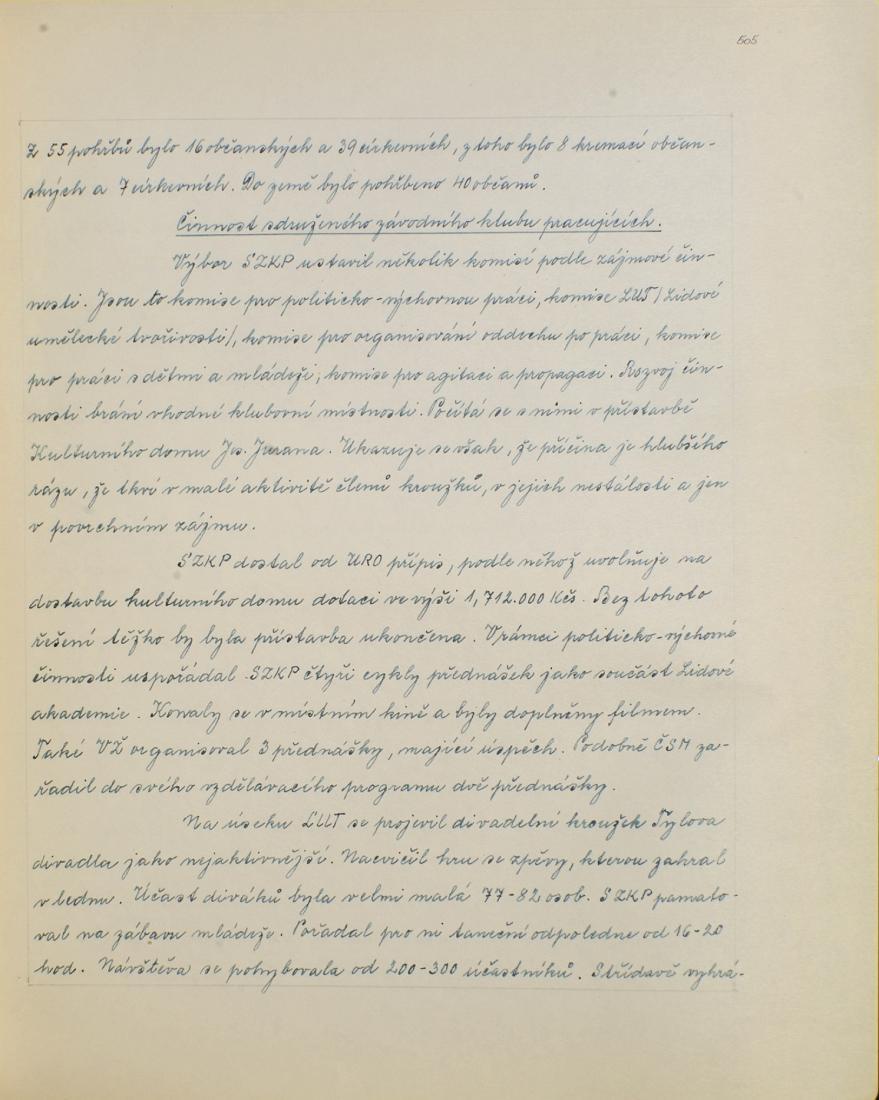 505
Z 55 pohřbů bylo 16 občanských a 39 církevních, z toho bylo 8 kremací občan-
ských a 7 církevních. Do země bylo pohřbeno 40 občanů.
Činnost sdruženého závodního klubu pracujících.
Výbor SZKP ustavil několik komisí podle zájmové čin-
nosti. Jsou to komise pro politicko-výchovnou práci, komise LUT /Lidové
umělecké tvořivosti/, komise pro organisování oddechu po práci, komise
pro práci s dětmi a mládeží, komise pro agitaci a propagaci. Rozvoj čin-
nosti brání vhodné klubovní místnosti. Počítá se s nimi v přístavbě
Kulturního domu Jos. Jurana. Ukazuje se však, že příčina je hlubšího
rázu, že tkví v malé aktivitě členů kroužků, v jejich nestálosti a jen
v povrchním zájmu.
SZKP dostal od URO přípis, podle něhož uvolňuje na
dostavbu kulturního domu dotaci ve výši 1,712.000 Kčs. Bez tohoto
řešení těžko by byla přístavba ukončena. V rámci politicko-výchovné
činnosti uspořádal SZKP čtyři cykly přednášek jako součást Lidové
akademie. Konaly se v místním kině a byly doplněny filmem.
Také VŽ organisoval 3 přednášky, mající úspěch. Podobně ČSM za-
řadil do svého vzdělávacího programu dvě přednášky.
Na úseku LUT se projevil divadelní kroužek Tylova
divadla jako nejaktivnější. Nacvičil hru se zpěvy, kterou zahrál
v lednu. Účast diváků byla velmi malá 77-82 osob. SZKP pamato-
val na zábavu mládeže. Pořádal pro ni taneční odpoledne od 16-20
hod. Návštěva se pohybovala od 200-300 účastníků. Střídavě vyhrá-